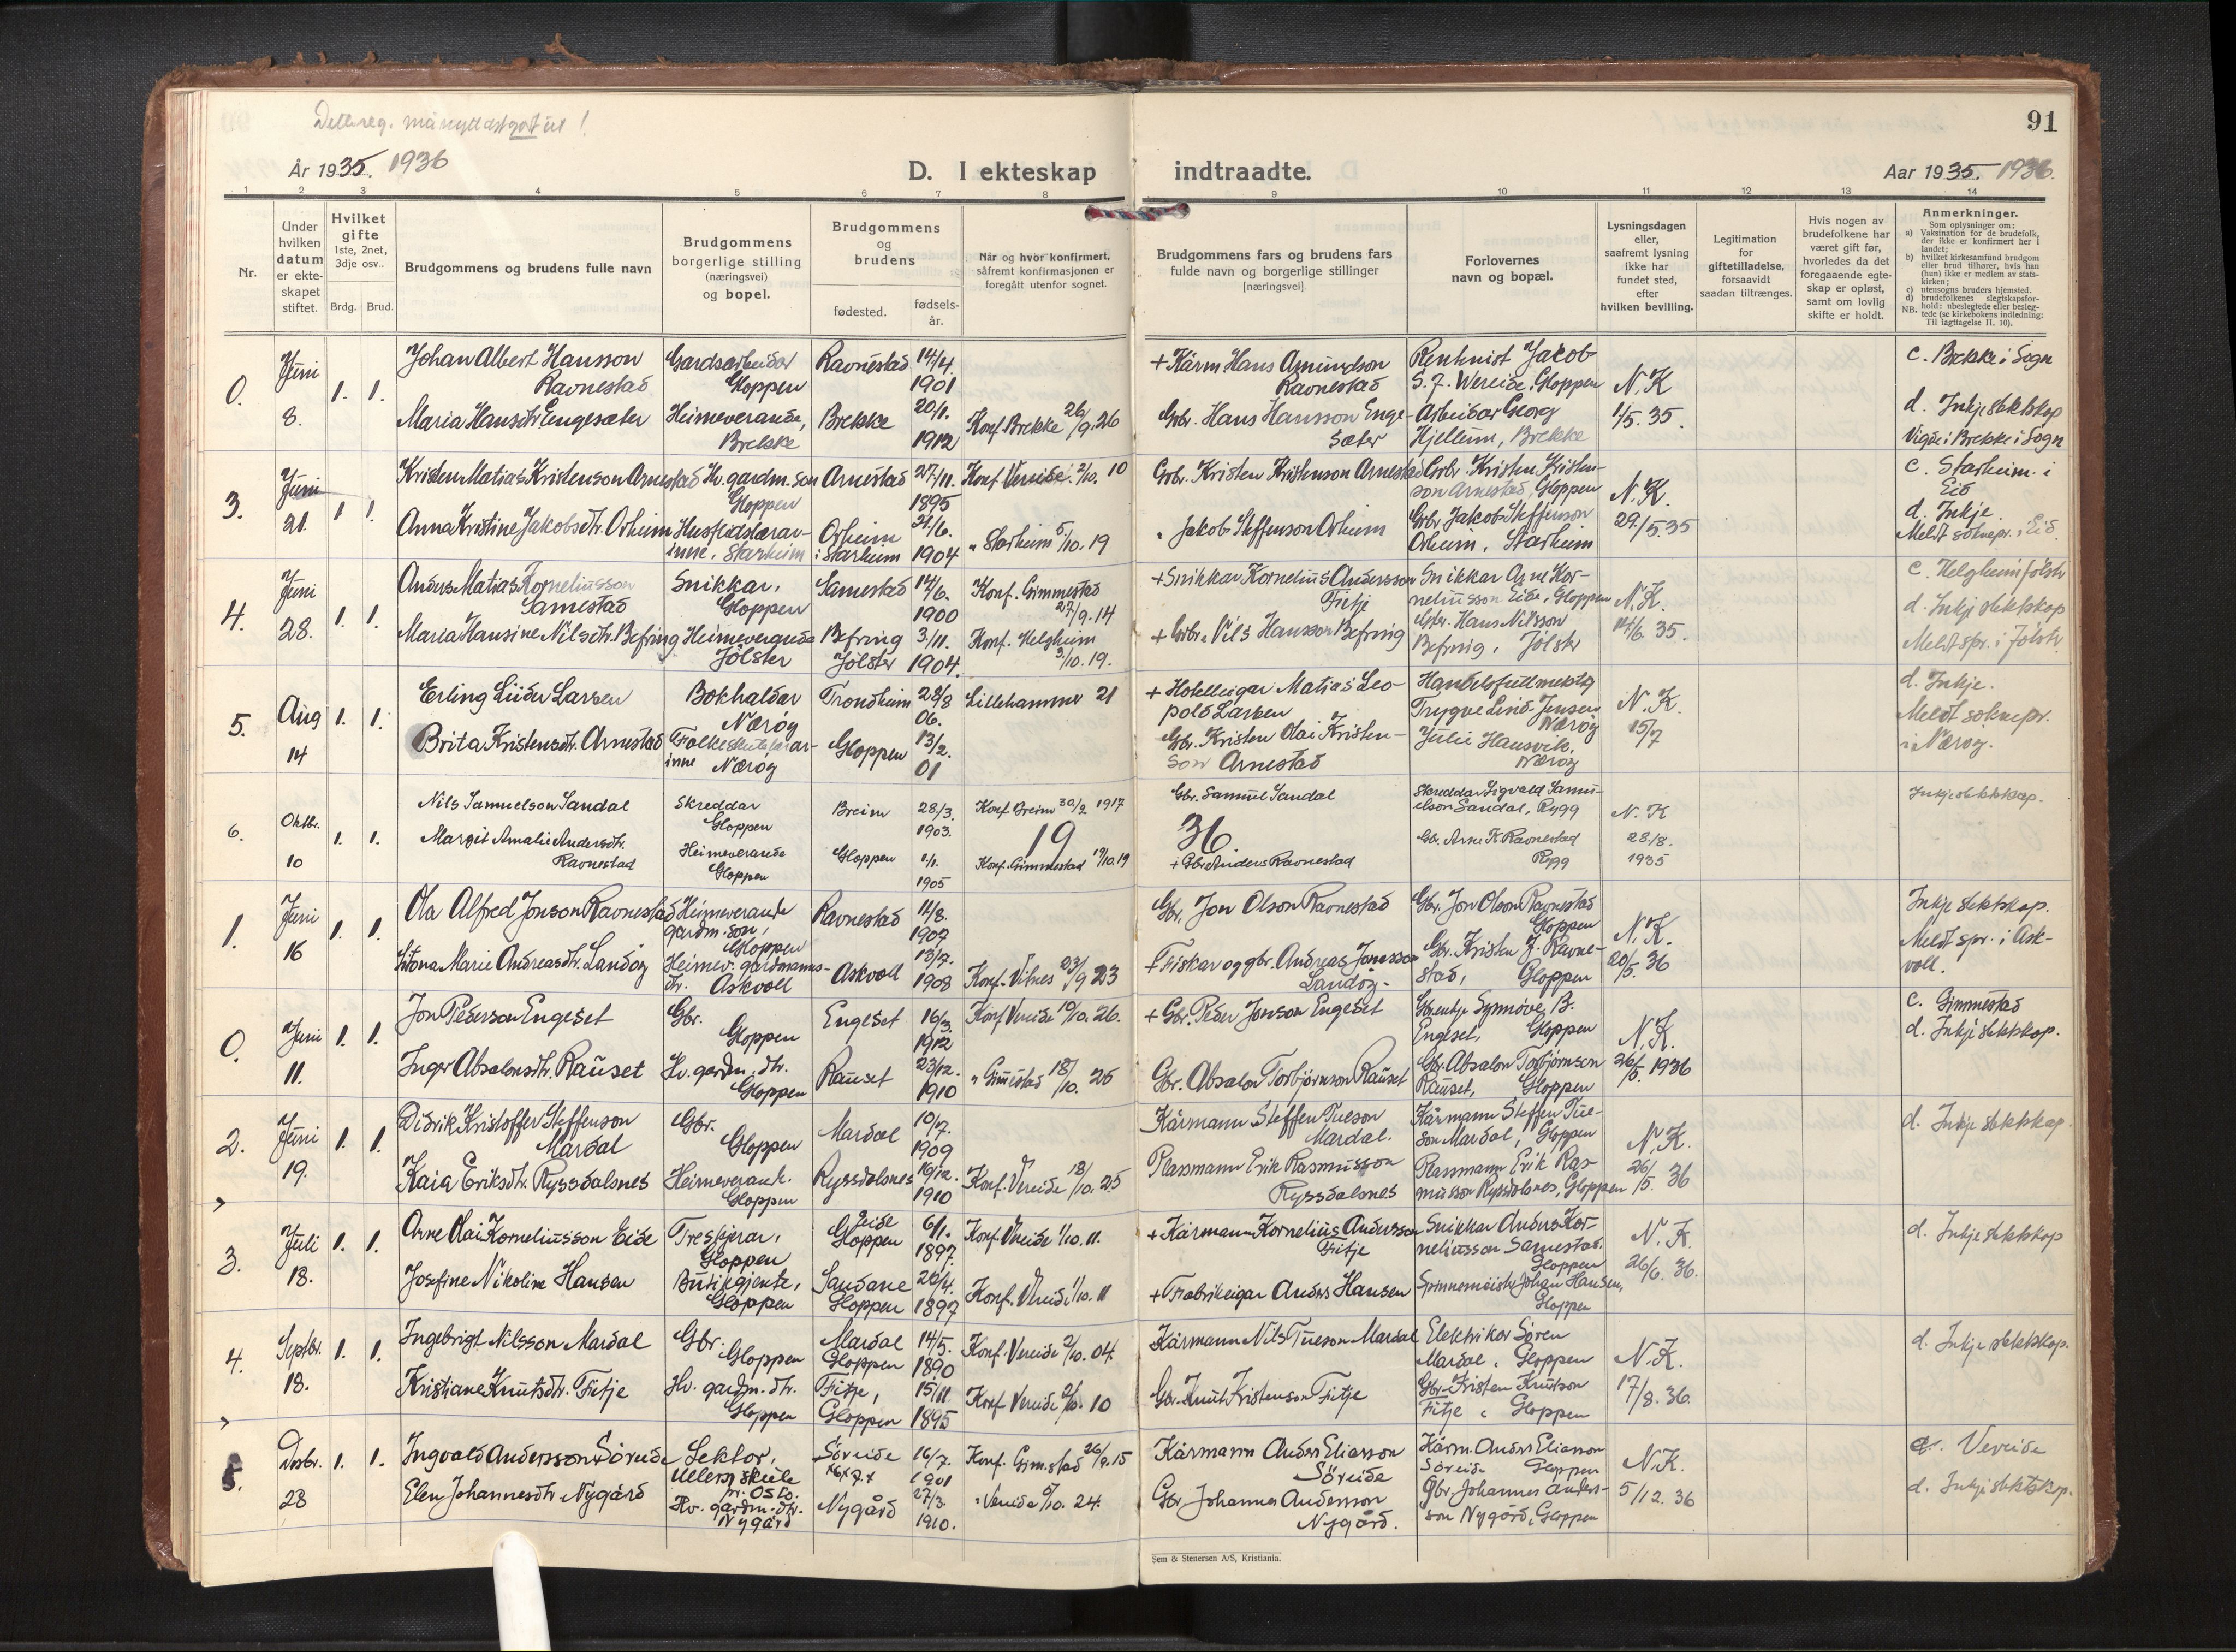 91
År 1935. 1936
D. I ekteskap indtraadte.
Aar 1935. 1936.
1 2 3 4 5 6 7 8 9 10 11 12 13 14
Nr.
Under hvilken datum er ekte-skapet stiftet.
Hvilket gifte
1ste, 2net, 3dje osv..
Brdg. Brud.
Brudgommens og brudens fulle navn
Brudgommens borgerlige stilling (næringsvei) og bopel.
Brudgommens og brudens
fødested.
fødsels-år.
Når og hvor konfirmert, såfremt konfirmasjonen er foregått utenfor sognet.
Brudgommens fars og brudens fars fulde navn og borgerlige stillinger [næringsvei]
Forlovernes navn og bopæl.
Lysningsdagen eller, saafremt lysning ikke har fundet sted, efter hvilken bevilling.
Legitimation for giftetilladelse, forsaavidt saadan tiltrænges.
Hvis nogen av brudefolkene har været gift før, hvorledes da det foregaaende egte-skap er opløst, samt om lovlig skifte er holdt.
Anmerkninger.
Som oplysninger om:
a) Vaksination for de brudefolk, der ikke er konfirmert her i landet;
b) hvilket kirkesamfund brudgom eller brud tilhører, hvis han (hun) ikke er medlem av stats-kirken;
c) utensogns bruders hjemsted.
d) brudefolkenes slegtskapsfor-hold: ubeslegtede eller besleg-tede (se kirkebokens indledning: Til Iagttagelse II. 10).
NB.
0. Juni 8. 1. 1.
Johan Albert Hansson Ravnestad Gardsarbeidar Gloppen Ravnestad 14/4. 1901
+ Kårm Hans Amundson Ravnestad
Rentenist Jakob S. J. Vereide, Gloppen
N.K 1/5. 35.
c. Brekke i Sogn
Maria Hansdtr Engesæter Heimeverande, Brekke Brekke 20/1. 1912 Konf. Brekke 26/9. 26
Gbr. Hans Hansson Engesæter
Arbeidar Georg Hjellum, Brekke
d. Inkje slektskap
Vigde i Brekke i Sogn
3. Juni 21. 1 1.
Kristen Matias Kristenson Arnestad Hv. gardm. son Gloppen Arnestad 27/11. 1895 Konf Vereide 2/10. 10
Gbr. Kristen Kristenson Arnestad
Gbr. Kristen Kristenson Arnestad, Gloppen
N.K. 29./5. 35
c. Starheim i Eid
Anna Kristine Jakobsdtr. Orheim Husflidslærarinne, Starheim Orheim i Starheim 21/6. 1904 " Starheim 5/10. 19
" Jakob Steffenson Orheim
Gbr Jakob Steffenson Orheim, Starheim
d. Inkje
Meldt soknepr. i Eid.
4. Juni 28. 1. 1.
Anders Matias Korneliusson Samestad Snikkar, Gloppen Samestad 14/6. 1900 Konf. Gimmestad 27/9. 14
+ Snikkar Kornelius Andersson Fitje
Snikkar Arne Korneliusson Eide, Gloppen
N.K. 14/6. 35.
c. Helgheim Jølstr
Maria Hansine Nilsdtr. Befring Heimeverande Jølster Befring Jølster 3./11. 1904. Konf. Helgheim 3/10. 19.
+ Gbr. Nils Hansson Befring
Gbr. Hans Nilsson Befring, Jølstr
d. Inkje slektskap
Meldt spr. i Jølstr.
5. Aug 14 1. 1.
Erling Lüder Larsen Bokhaldar Nærøy Trondheim 28/8 06. Lillehammer 21
+ Hotelleigar Matias Leopold Larsen
Handelsfullmektig Trygve Lind-Jensen Nærøy
N.K. 15/7
d. Inkje.
Meldt soknepr. i Nærøy.
Brita Kristensdtr. Arnestad Folkeskulelærarinne Nærøy Gloppen 13/2. 01
Gbr. Kristen Olai Kristenson Arnestad
Julie Hansvik, Nærøy
6. Oktbr. 10 1. 1.
Nils Samuelson Sandal Skreddar Gloppen Breim 28/3. 1903. Konf Breim 30/9 1917
Gbr. Samuel Sandal
Skreddar Sigvald Samuelson Sandal, Rygg
N.K 28/8. 1935
Inkje slektskap.
Margit Amalie Andersdtr. Ravnestad Heimeverande Gloppen Gloppen 1/1. 1905 Konf. Gimmestad 19/10. 19
+ Gbr Anders Ravnestad
Gbr. Arne K Ravnestad Rygg
19 36
1. Juni 16 1. 1.
Ola Alfred Jonson Ravnestad Heimeverande gardm. son, Gloppen Ravnestad 11/8. 1907
Gbr. Jon Olson Ravnestad
Gbr. Jon Olson Ravnestad Gloppen
N.K. 20/5. 36
Inkje slektskap.
Meldt spr. i Askvoll.
Marie Andreasdtr. Landøy Heimev. gardmanns-dtr. Askvoll Askvoll 13/7. 1908 Konf. Vilnes 23/9 23
+ Fiskar og gbr. Andreas Jonsson Landøy
Gbr. Kristen J. Ravnestad, Gloppen
0. Juni 11. 1. 1.
Jon Pederson Engeset Gbr. Gloppen Engeset 16/3. 1912 Konf Vereide 10/10. 26.
+ Gbr. Peder Jonson Engeset
Gbrenkje Synnøve B. Engeset, Gloppen
N.K. 26/5. 1936
c. Gimmestad
d. Inkje slektskap.
Inger Absalonsdtr. Rauset Hv. gardm. dtr. Gloppen Rauset 23/12. 1910 " Gimestad 18/10. 25
Gbr. Absalon Torbjørnson Rauset
Gbr. Absalon Torbjørnson Rauset, Gloppen
2. Juni 19. 1. 1.
Didrik Kristoffer Steffenson Mardal Gbr. Gloppen Mardal 10/7. 1909
Kårmann Steffen Tueson Mardal.
Kårmann Steffen Tueson Mardal, Gloppen
N.K. 26/5. 36
d. Inkje slektskap.
Kaia Eriksdtr. Ryssdalsnes Heimeverank. Gloppen Ryssdalsnes 19/12. 1910 Konf. Vereide 18/10. 25
Plassmann Erik Rasmusson Ryssdalsnes
Plassmann Erik Rasmusson Ryssdalsnes, Gloppen
3. Juli 18. 1. 1.
Arne Olai Korneliusson Eide Treskjerar, Gloppen Eide Gloppen 6/1. 1897. Konf. Vereide 1/10. 11.
+ Kårmann Kornelius Andersson Fitje
Snikkar Anders Korneliusson Samestad. Gloppen
N.K. 26/6. 36.
d. Inkje slektskap
Josefine Nikoline Hansen Butikgjente, Gloppen Sandane Gloppen 26/4. 1897 Konf. Vereide 1/10. 11
+ Fabrikeigar Anders Hansen
Spinnemeister Johan Hansen, Gloppen
4. Septbr. 18. 1. 1.
Ingebrigt Nilsson Mardal Gbr. Gloppen Mardal Gloppen 14/5. 1890 Konf. Vereide 2/10. 04.
Kårmann Nils Tueson Mardal
Elektrikar Søren Mardal, Gloppen
N.K. 17/8. 36.
d. Inkje slektskap.
Kristiane Knutsdtr. Fitje Hv. gardm. dtr. Gloppen Fitje, Gloppen 15/11. 1895 Konf Vereide 2/10. 10
Gbr. Knut Kristenson Fitje
Gbr. Kristen Knutson Fitje, Gloppen
5. Desbr. 28 1. 1.
Ingvald Andersson Søreide Lektor, Ullern skule pr. Oslo. Søreide 16/7. 1901 Konf. Gim.stad 26/9. 15
Kårmann Anders Eliasson Søreide
Kårm. Anders Eliasson Søreide Gloppen
N.K. 5/12. 36
c. Vereide
Elen Johannesdtr Nygård Hv. gardm. dtr. Nygård Nygård 27/3. 1910. " Vereide 5/10. 24.
Gbr. Johannes Andersson Nygård.
Gbr. Johannes Andersson Nygård, Gloppen
d. Inkje slektskap.
Sem & Stenersen A/S, Kristiania.